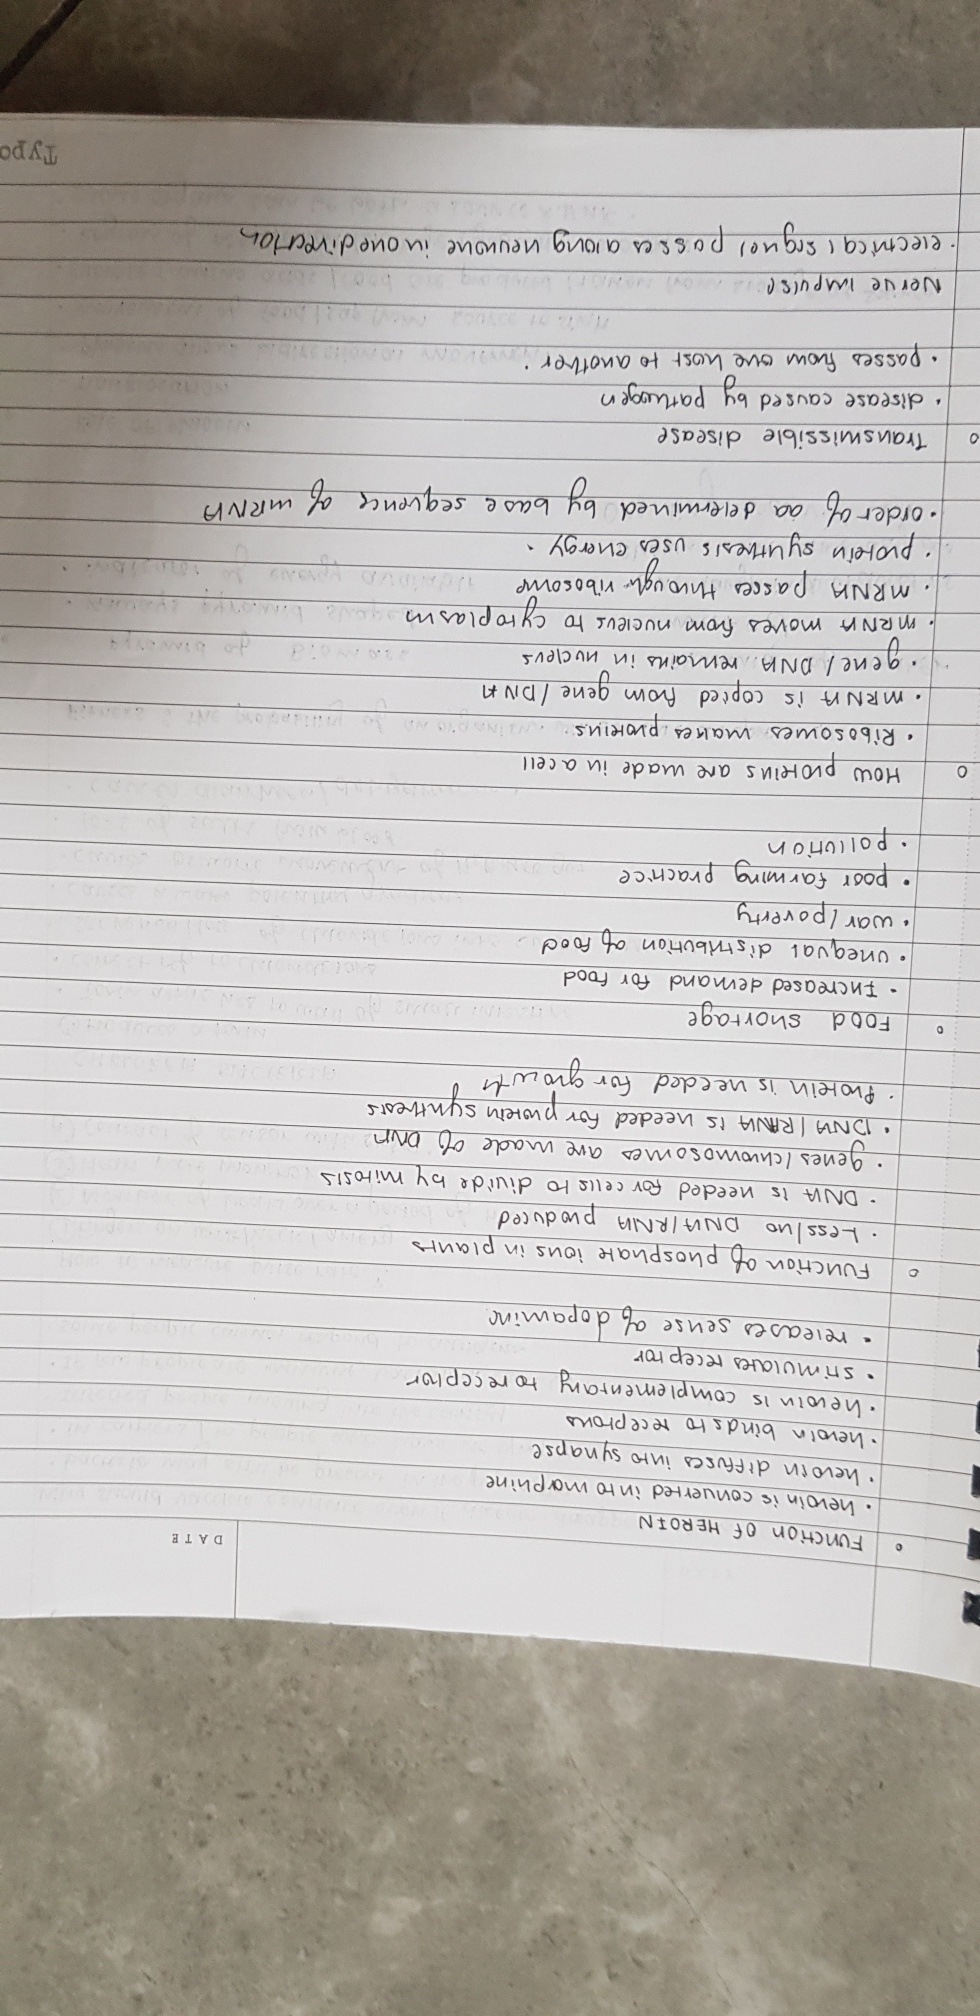 DATE
FUNCTION OF HEROIN
• heroin is converted into morphine
• heroin diffuses into synapse
• heroin binds to receptors
• heroin is complementary to receptor
• stimulates receptor
• releases sense of dopamine
Function of phosphate ions in plants
• Less/no DNA/RNA produced
• DNA is needed for cells to divide by mitosis
• genes/chromosomes are made of DNA
• DNA/RNA is needed for protein synthesis
• Protein is needed for growth
Food shortage
• Increased demand for food
• unequal distribution of food
• war/poverty
• poor farming practice
• pollution
How proteins are made in a cell
• Ribosomes makes proteins.
• mRNA is copied from gene/DNA
• gene/DNA remains in nucleus
• mRNA moves from nucleus to cytoplasm
• mRNA passes through ribosome
• protein synthesis uses energy.
• order of aa determined by base sequence of mRNA
Transmissible disease
• disease caused by pathogen
• passes from one host to another.
Nerve impulse
• electrical signal passes along neurone in one direction
Typo